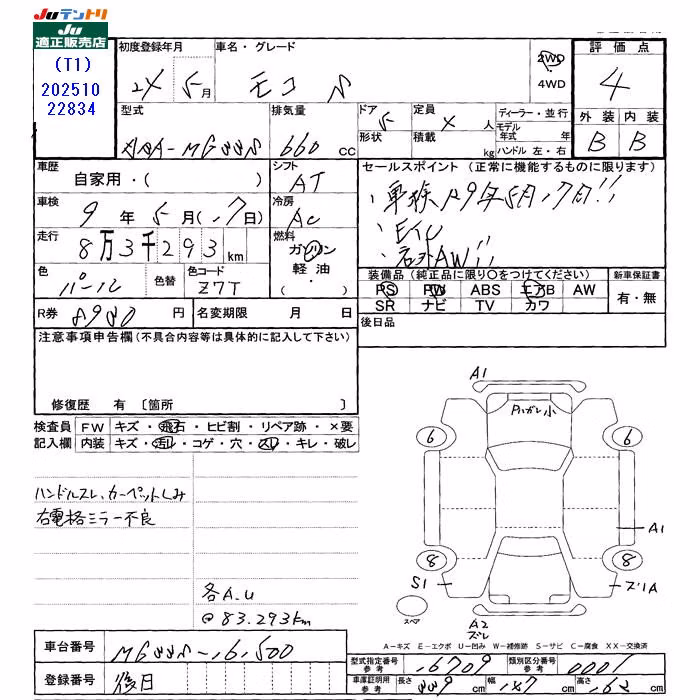 Juテントリ
Ju
適正販売店
(T1)
202510
22834
初度登録年月
24 5月
車名・グレード
モコ S
2WD
4WD
評価点
4
外装 内装
B B
型式
排気量
660 cc
ドア 5
形状
定員 4 人
積載 kg
ディーラー・並行
モデル年式 年
ハンドル 左・右
車歴
自家用・( )
シフト
AT
セールスポイント (正常に機能するものに限ります)
・車検R9年5月17日!!
・ETC
・社外AW!!
車検
9年5月(17日)
冷房
AC
走行
8万3千293km
燃料
ガソリン
軽油・
( )
色
パール
色替
色コード
Z7T
装備品 (純正品に限り○をつけてください)
PS PW ABS エアB AW
SR ナビ TV カワ
新車保証書
有・無
R券 8980 円
名変期限 月 日
後日品
注意事項申告欄(不具合内容等は具体的に記入して下さい)
修復歴 有 〔箇所 〕
検査員記入欄
FW キズ・飛石・ヒビ割・リペア跡・×要
内装 キズ・汚レ・コゲ・穴・スレ・キレ・破レ
ハンドルスレ、カーペットしみ
右電格ミラー不良
各A.U
@83.293km
A1
Pハガレ小
6
6
A1
8
8
S1
スペア
A2
ズレ
A-キズ E-エクボ U-凹み W-補修跡 S-サビ C-腐食 XX-交換済
車台番号
登録番号
後日
型式指定番号 参考
16709
類別区分番号 参考
0001
車庫証明用 参考
長さ 339 cm
幅 147 cm
高さ 162 cm